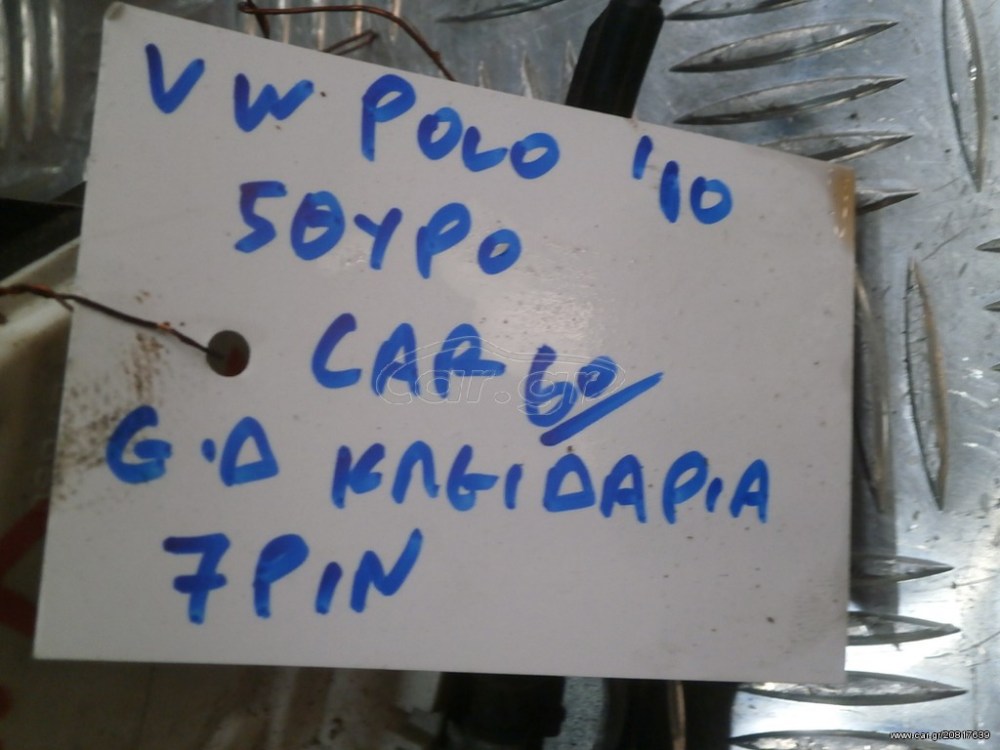 VW POLO '10
5ΘΥΡΟ
CARGO/
G.Δ ΚΛΕΙΔΑΡΙΑ
7 PIN
car.gr
www.car.gr/20817639